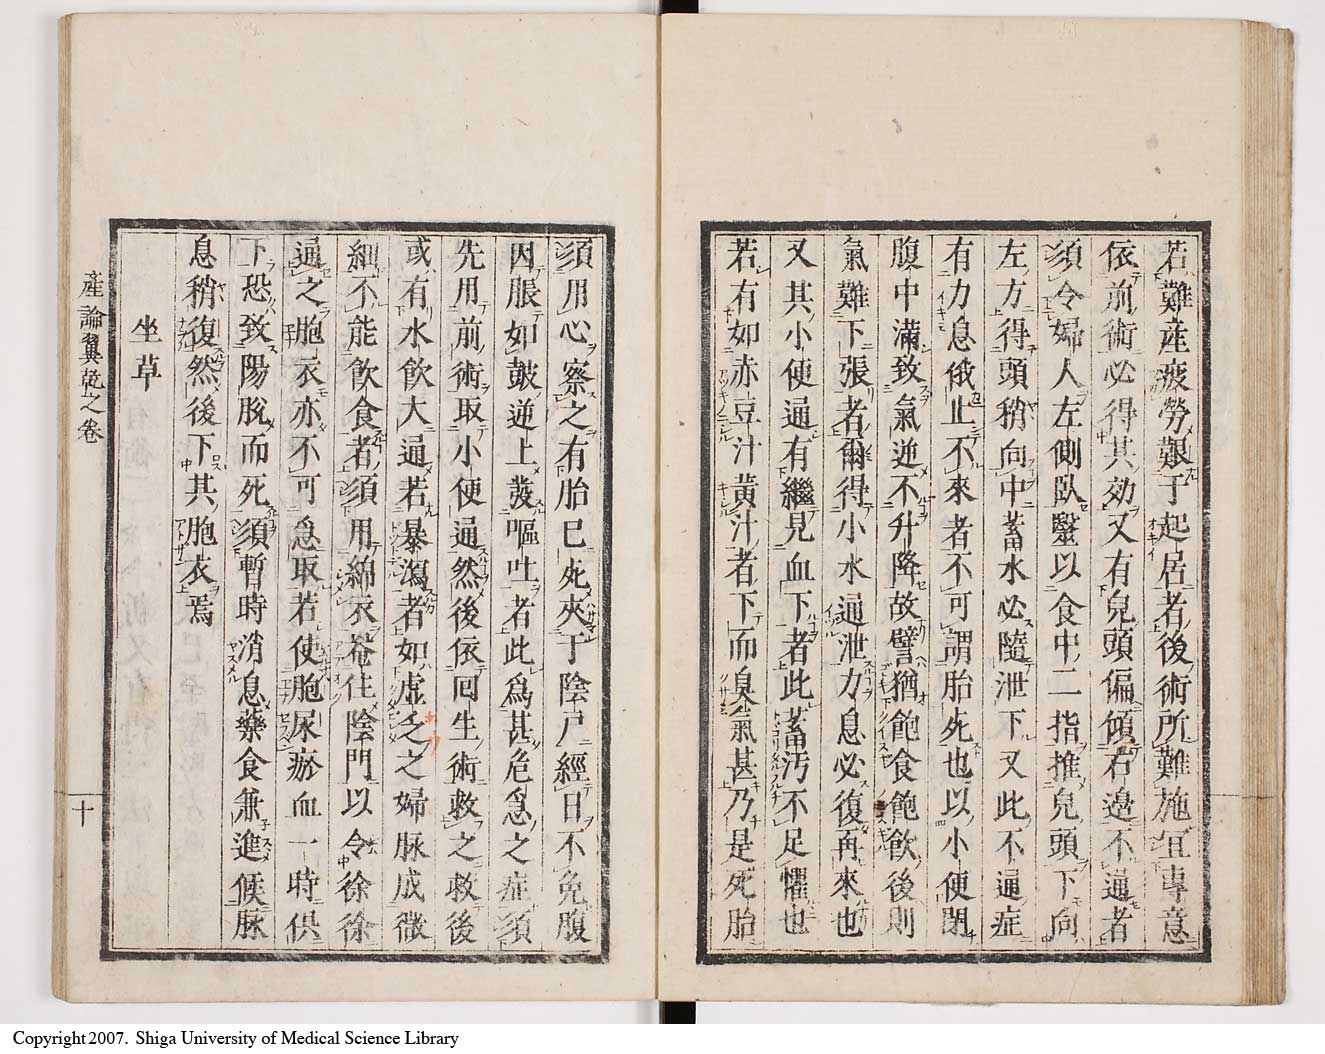 若難産疲勞艱于起居者後術所難施宜專意
依前術必得其効又有兒頭偏傾右邉不通者
須令婦人左側臥毉以食中二指推兒頭下向
左方得頭稍向中蓄水必隨泄下又此不通症
有力息俄止不來者不可謂胎死也以小便閉
腹中滿致氣逆不升降故譬猶飽食飽飲後則
氣難下張者爾得小水通泄力息必復再來也
又其小便通有繼見血下者此蓄汚不足懼也
若有如赤豆汁黄汁者下而臭氣甚乃是死胎
須用心察之有胎已死夾于陰戸經日不免腹
因脹如皷逆上發嘔吐者此爲甚危急之症須
先用前術取小便通然後依回生術救之救後
或有水飲大通若暴瀉者如虚乏之婦脉成微
細不能飲食者須用綿衣菴住陰門以令徐徐
通之胞衣亦不可急取若使胞尿瘀血一時倶
下恐致陽脱而死須暫時消息藥食兼進候脉
息稍復然後下其胞衣焉
坐草
産論翼乾之巻
十
Copyright 2007. Shiga University of Medical Science Library